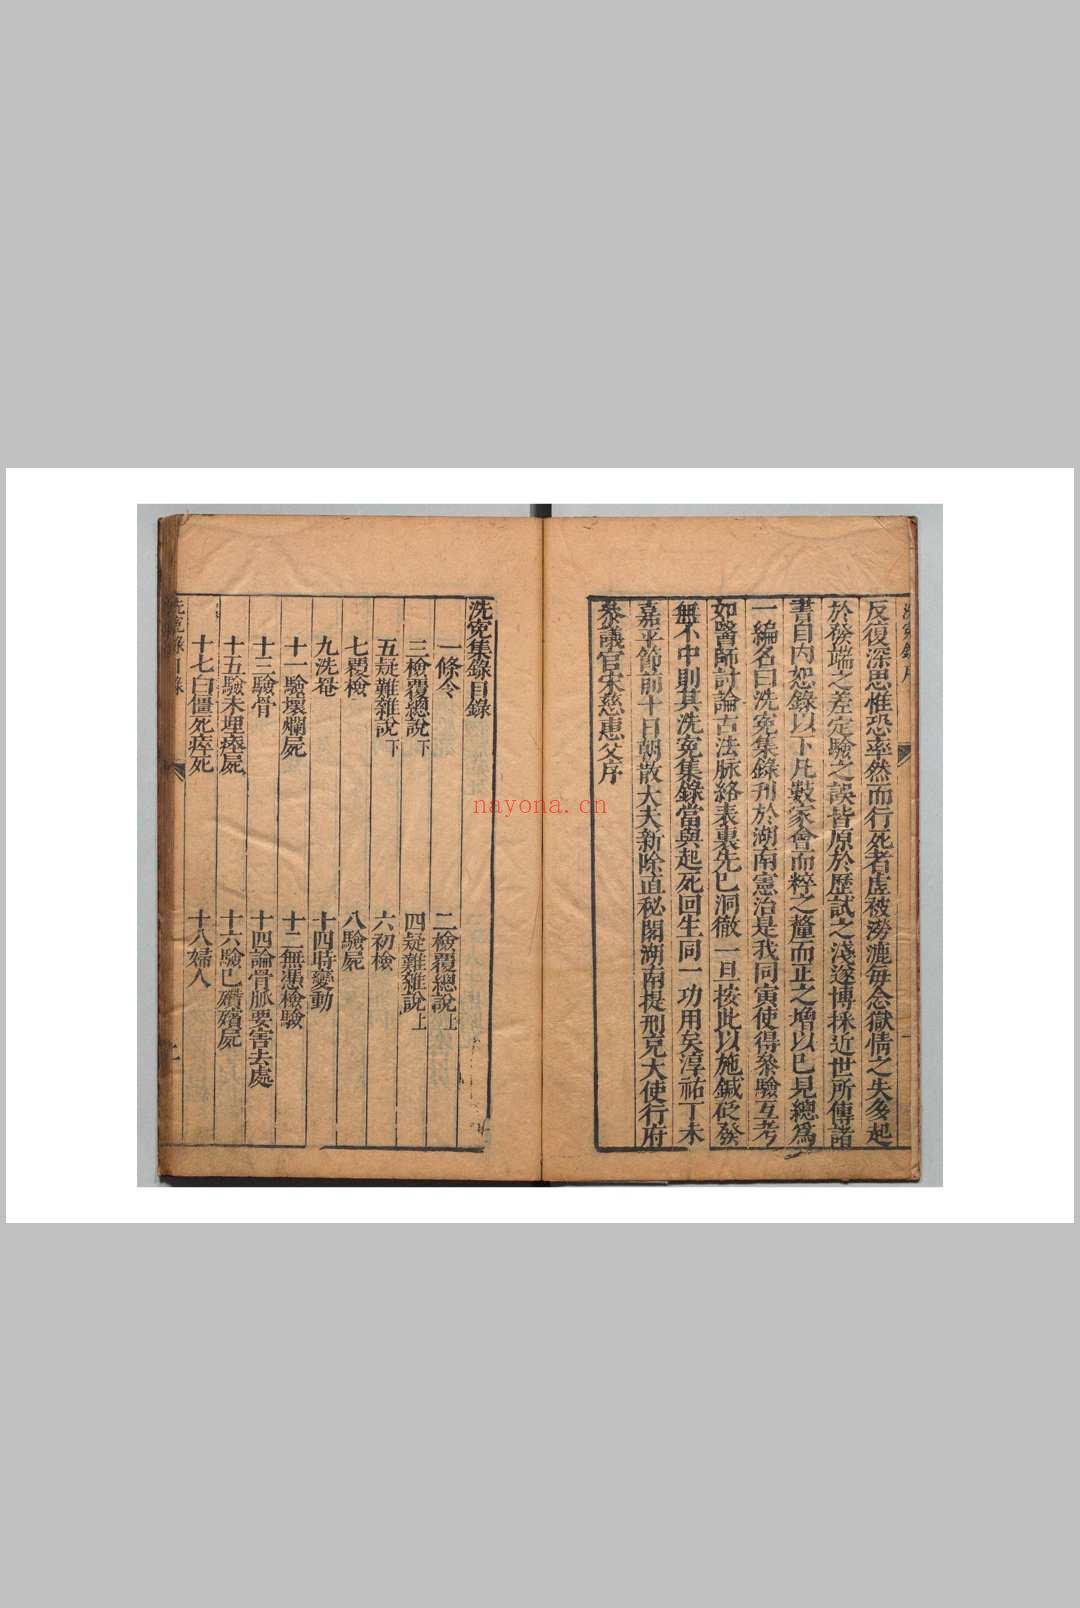 反復深思惟恐率然而行死者虚被澇漉每念獄情之失多起
於發端之差定驗之誤皆原於歷試之淺遂博採近世所傳諸
書自内恕錄以下凡數家會而粹之釐而正之增以已見總爲
一編名曰洗寃集錄刋於湖南憲治是我同寅使得叅驗互考
如醫師討論古法脉絡表裏先已洞徹一旦按此以施鍼砭發
無不中則其洗寃集錄當與起死回生同一功用矣淳祐丁未
嘉平節前十日朝散大夫新除直秘閣湖南提刑充大使行府
叅議官宋慈惠父序
洗寃集錄目錄
一條令 二檢覆總說上
三檢覆總說下 四疑難雜說上
五疑難雜說下 六初檢
七覆檢 八驗屍
九洗罨 十四時變動
十一驗壞爛屍 十二無憑檢驗
十三驗骨 十四論骨脈要害去處
十五驗未埋瘞屍 十六驗已攢殯屍
十七白僵死瘁死 十八婦人
nayona.cn